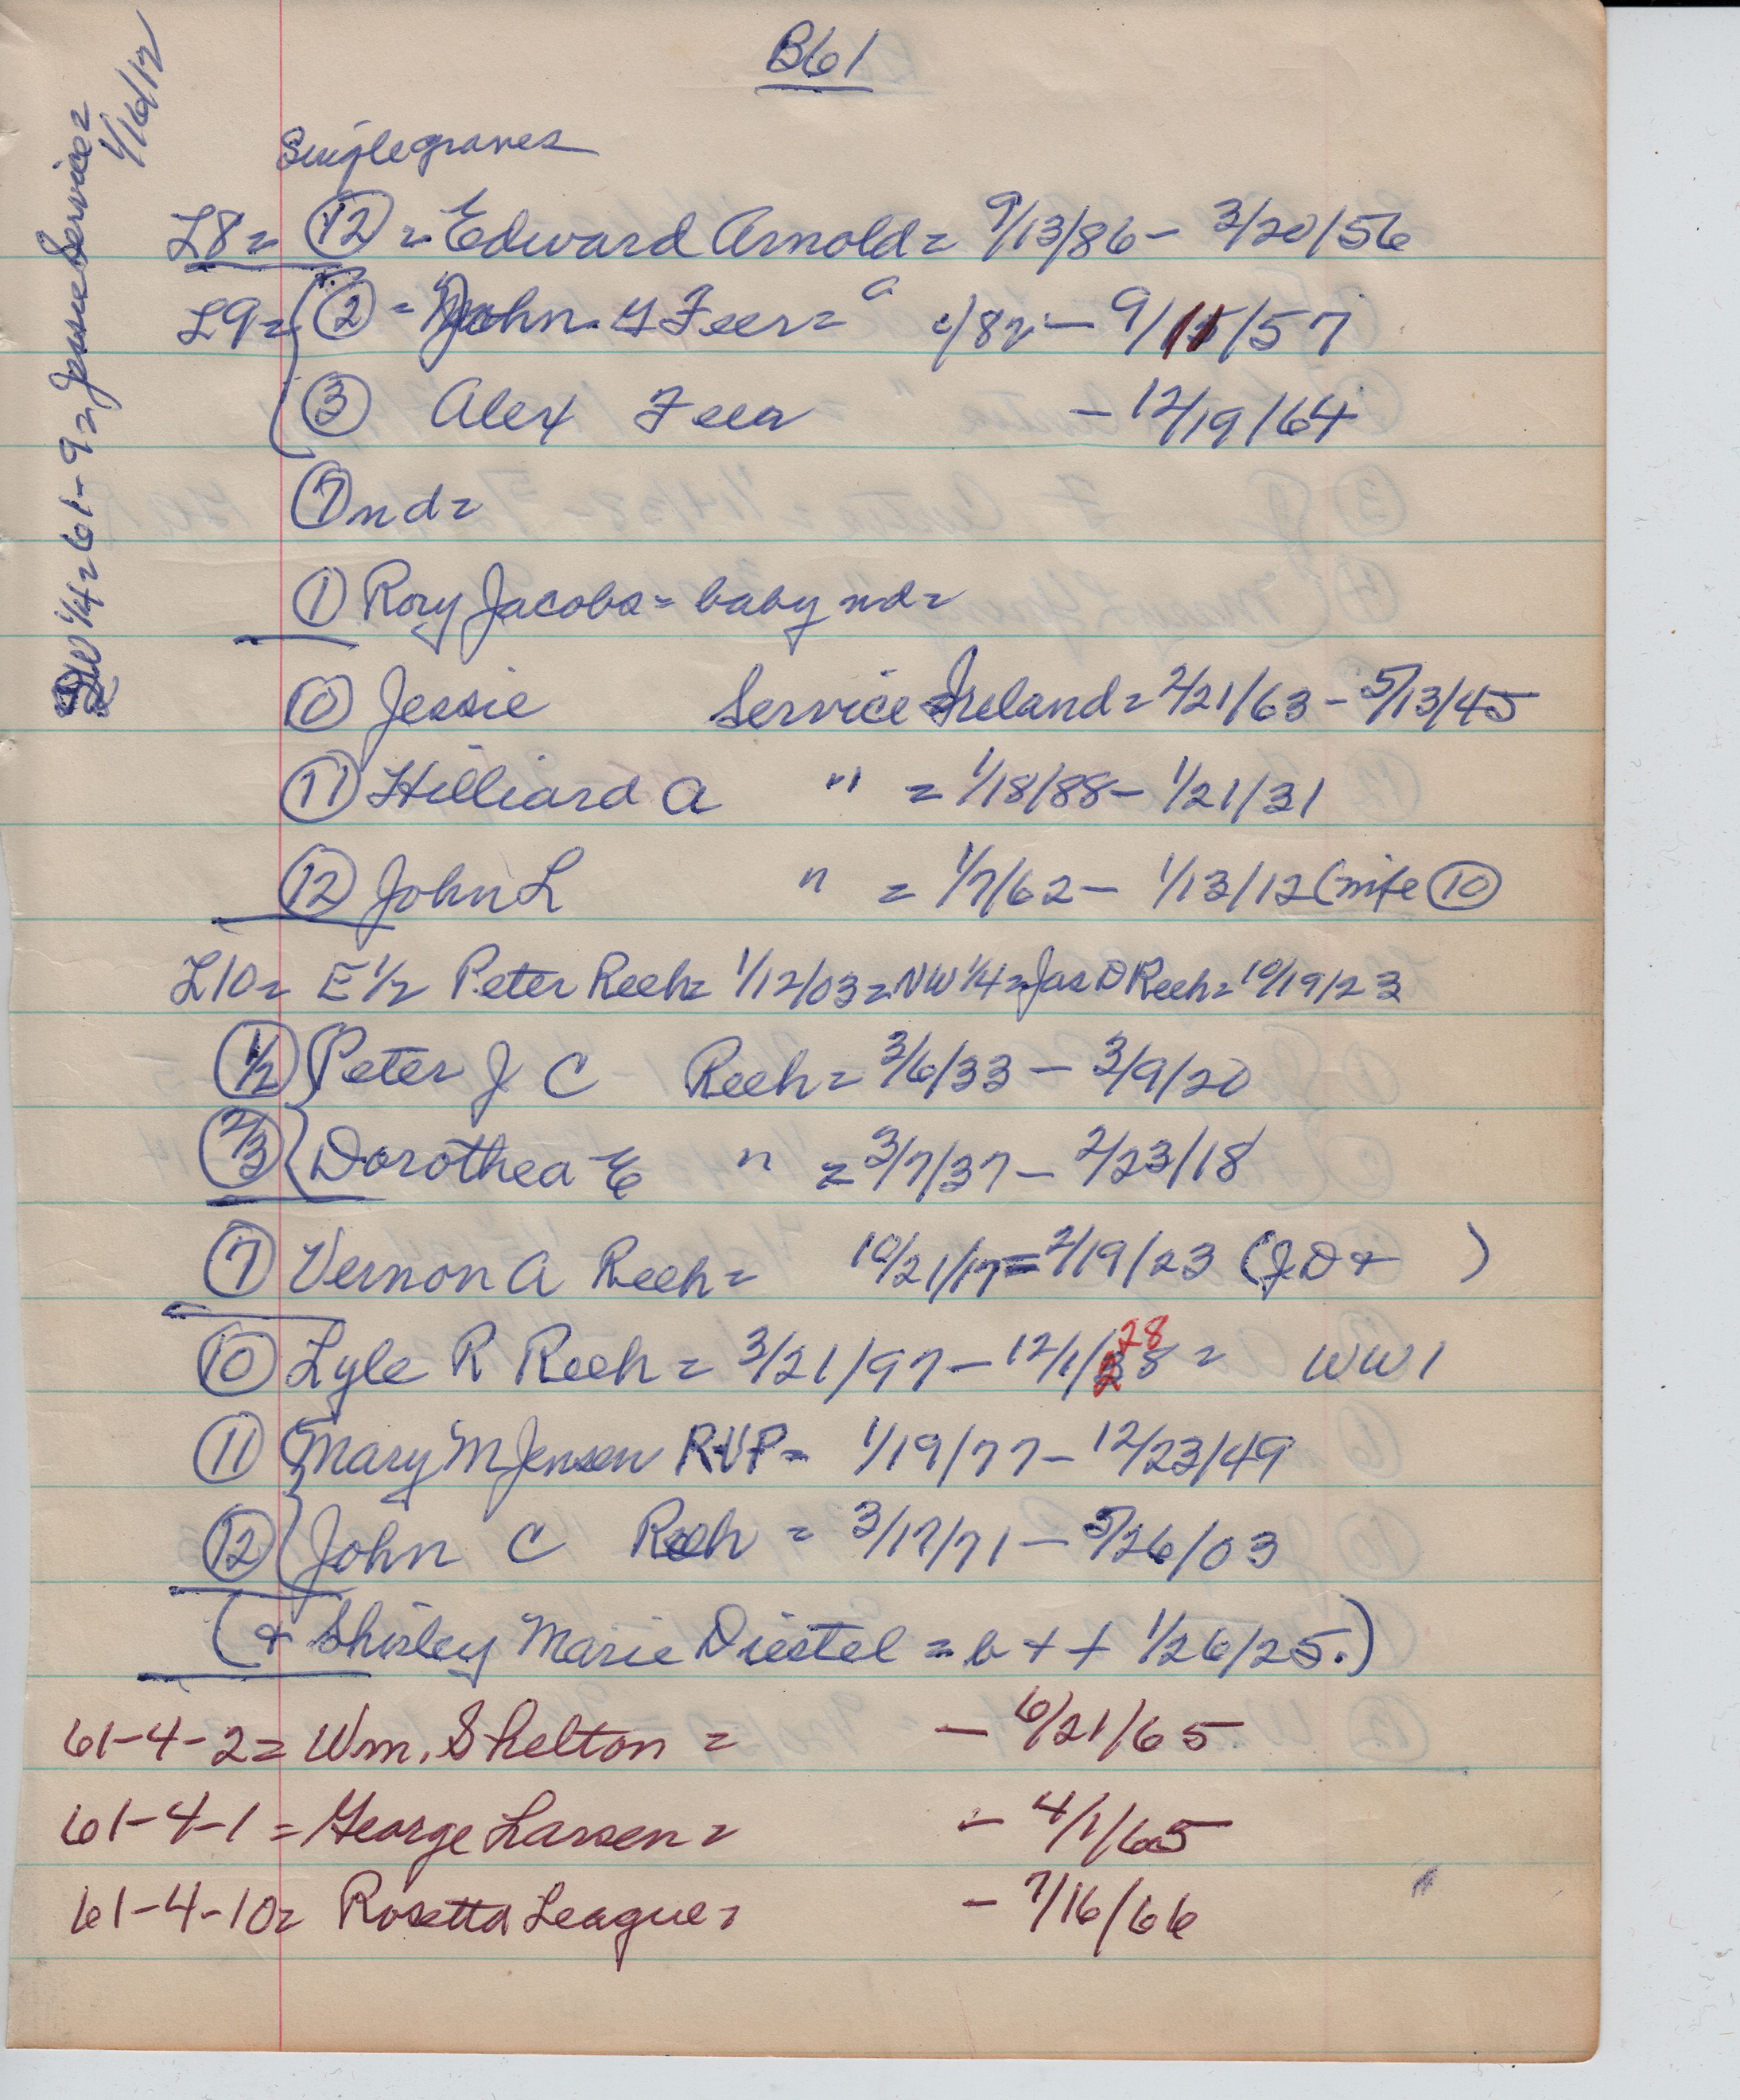 B61
SW 1/4 = 61-9 = Jessie Service =
1/16/12
Single graves
L8 = (12) = Edward Arnold = 9/13/86 - 3/20/56
L9 = (2) = John. Y Feer = a /82 - 9/11/57
(3) Alex Feer - 12/19/64
(7) nd =
(1) Rory Jacobs = baby nd =
(10) Jessie Service Ireland = 2/21/63 - 5/13/45
(11) Hilliard A " = 1/18/88 - 1/21/31
(12) John L " = 1/7/62 - 1/13/12 (wife (10)
L10 = E 1/2 Peter Reeh = 1/12/03 = NW 1/4 = Jas D Reeh = 10/19/23
(1/2) Peter J C Reeh = 3/6/33 - 3/9/20
(2/3) Dorothea E " = 3/7/37 - 2/23/18
(7) Vernon A Reeh = 10/21/17 = 2/19/23 (JD + )
(10) Lyle R Reeh = 3/21/97 - 12/1/28 28 = WW1
(11) Mary M Jensen RVP = 1/19/77 - 12/23/49
(12) John C Reeh = 3/17/71 - 5/26/03
(+ Shirley Marie Diestel = b + + 1/26/25.)
61-4-2 = Wm. Shelton = - 6/21/65
61-4-1 = George Larsen = - 4/1/65
61-4-10 = Rosetta League = - 7/16/66